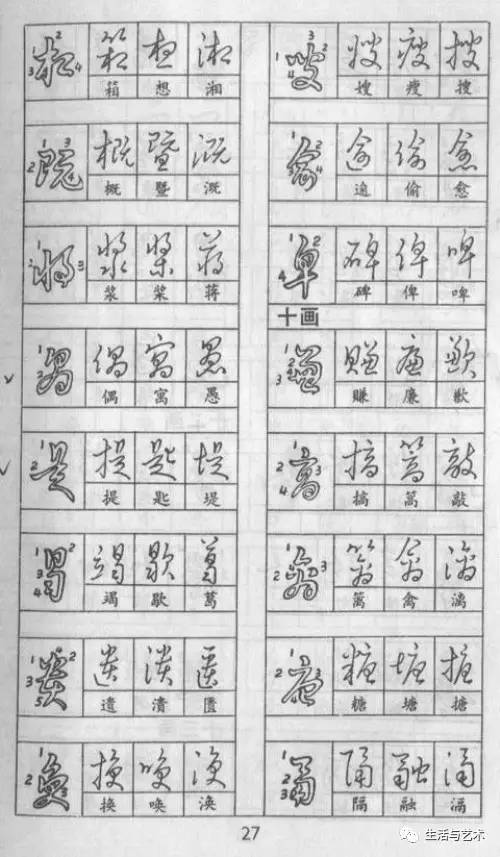 箱 想 湘
概 暨 溉
浆 桨 蒋
偶 寓 愚
提 匙 堤
竭 歇 葛
遗 溃 匮
换 唤 涣
嫂 瘦 搜
逾 偷 愈
碑 俾 啤
十画
赚 廉 歉
搞 篙 敲
篱 禽 漓
糖 塘 搪
隔 融 滆
27
生活与艺术